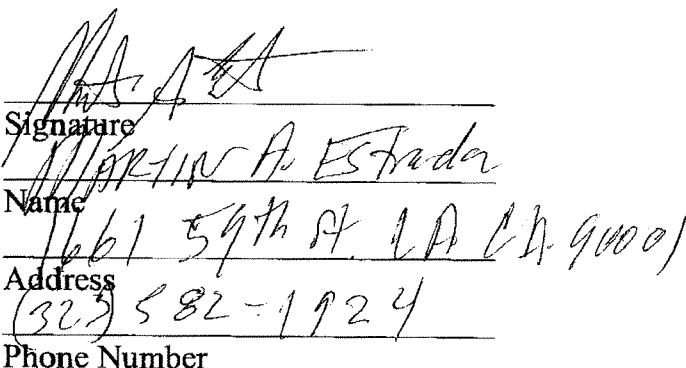 Signature
MARTIN A. Estrada
Name
1661 59th St. LA CA. 90001
Address
(323) 582-1924
Phone Number